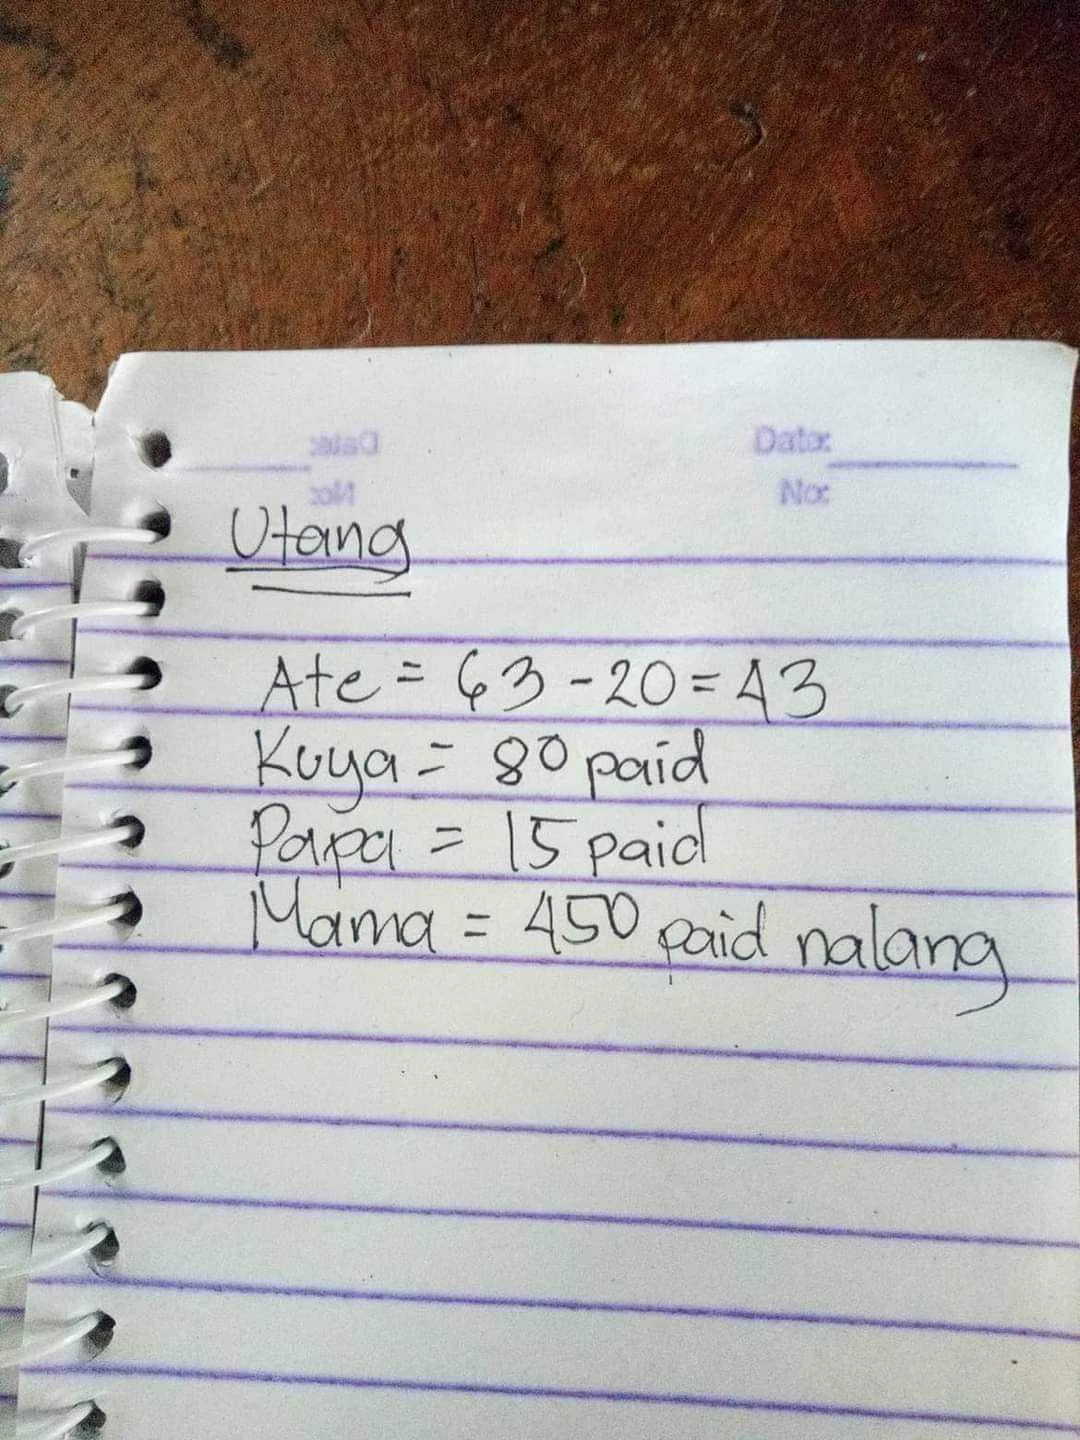 Date:
No:
Utang
Ate = 63 - 20 = 43
Kuya = 80 paid
Papa = 15 paid
Mama = 450 paid nalang